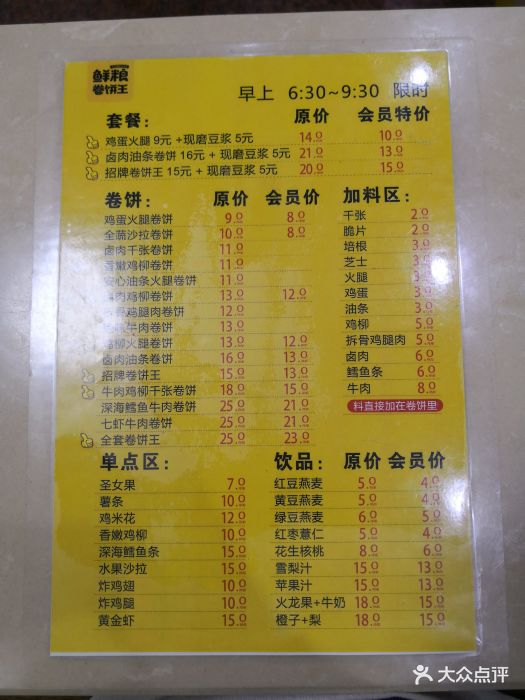 鲜粮
卷饼王
早上 6:30~9:30 限时
套餐： 原价 会员特价
鸡蛋火腿 9元 +现磨豆浆 5元 14.0 10.0
卤肉油条卷饼 16元 + 现磨豆浆 5元 21.0 13.0
招牌卷饼王 15元 + 现磨豆浆 5元 20.0 15.0
卷饼： 原价 会员价
鸡蛋火腿卷饼 9.0 8.0
全蔬沙拉卷饼 10.0 8.0
卤肉千张卷饼 11.0
香嫩鸡柳卷饼 11.0
安心油条火腿卷饼 11.0
肉鸡柳卷饼 13.0 12.0
拆骨鸡腿肉卷饼 12.0
牛肉卷饼 13.0
柳火腿卷饼 13.0 12.0
卤肉油条卷饼 16.0 13.0
招牌卷饼王 15.0 13.0
牛肉鸡柳千张卷饼 18.0 15.0
深海鳕鱼牛肉卷饼 25.0 21.0
七虾牛肉卷饼 25.0 21.0
全套卷饼王 25.0 23.0
加料区：
千张 2.0
脆片 2.0
培根 3.0
芝士 3.0
火腿 3.0
鸡蛋 3.0
油条 3.0
鸡柳 5.0
拆骨鸡腿肉 5.0
卤肉 6.0
鳕鱼条 6.0
牛肉 8.0
料直接加在卷饼里
单点区：
圣女果 7.0
薯条 10.0
鸡米花 12.0
香嫩鸡柳 10.0
深海鳕鱼条 15.0
水果沙拉 15.0
炸鸡翅 10.0
炸鸡腿 10.0
黄金虾 15.0
饮品： 原价 会员价
红豆燕麦 5.0 4.0
黄豆燕麦 5.0 4.0
绿豆燕麦 6.0 5.0
红枣薏仁 5.0 4.0
花生核桃 8.0 6.0
雪梨汁 15.0 13.0
苹果汁 15.0 13.0
火龙果+牛奶 18.0 15.0
橙子+梨 18.0 15.0
大众点评